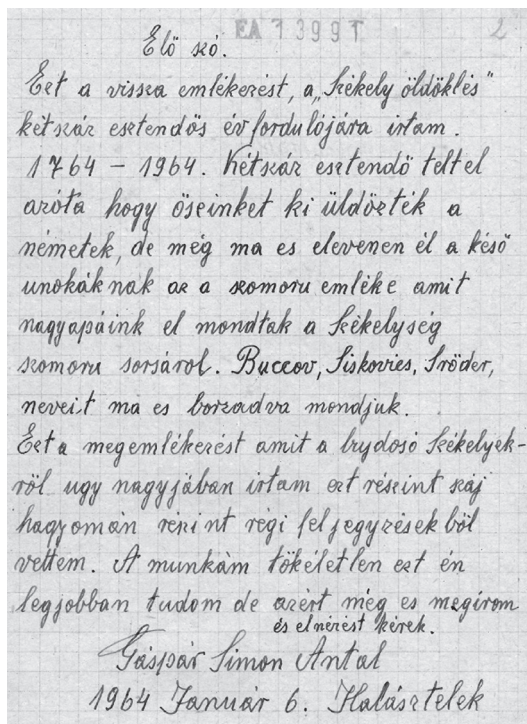 EA 13991 2
Elö szó.
Ezt a vissza emlékezést, a „Székely öldöklés"
kétszár esztendős évfordulójára irtam.
1764 – 1964. Kétszár esztendő teltel
azóta hogy őseinket ki üldözték a
németek, de még ma es elevenen él a késő
unokáknak az a szomoru emléke amit
nagyapáink el mondtak a Székelység
szomoru sorsárol. Buccov, Siskovics, Sröder,
neveit ma es borzadva mondjuk.
Ezt a megemlékezést amit a bujdosó Székelyek-
ről ugy nagyjában irtam ezt részint száj
hagyomán rezint régi feljegyzésekből
vettem. A munkám tökéletlen ezt én
legjobban tudom de azért még es megirom
és elnézést kérek.
Gáspár Simon Antal
1964 Január 6. Halásztelek